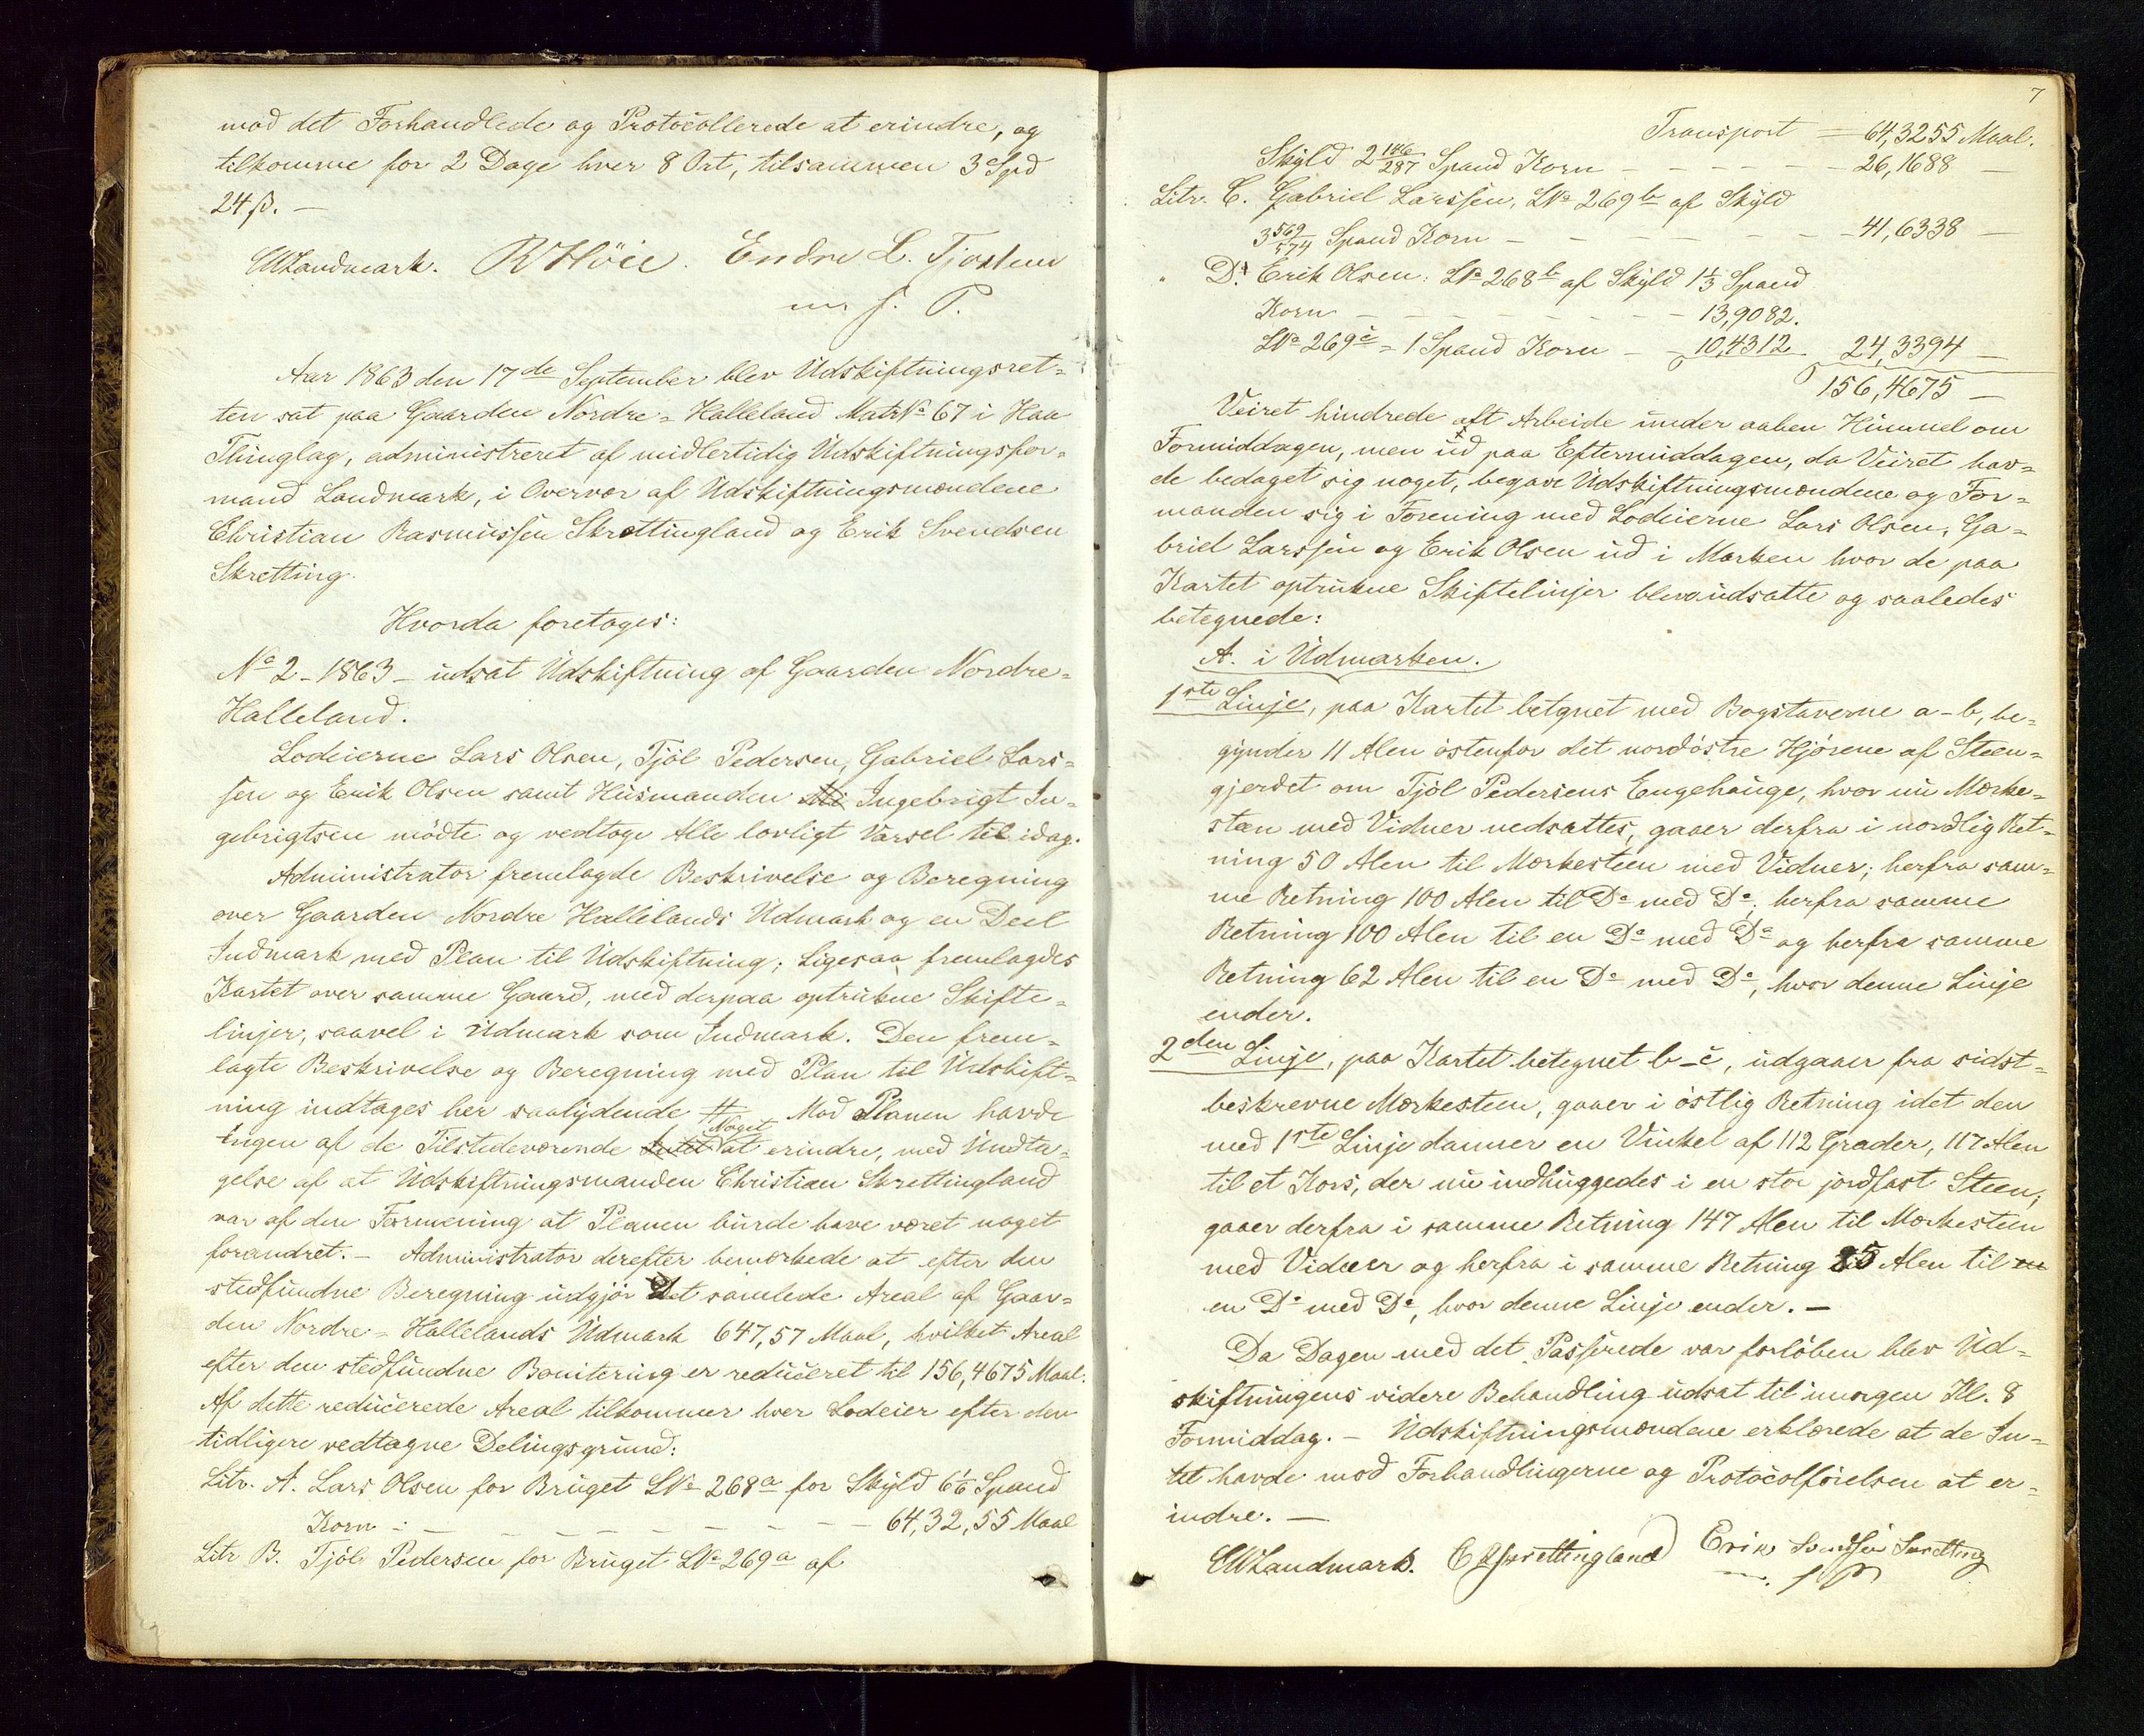 mod det Forhandlede og Protocollerede at erindre, og
tilkomme for 2 Dage hver 8 Ort, tilsammen 3 Spd
24 ß. —
CWLandmark. RHöie. Endre L. Tjostun
m. f. P.
Aar 1863 den 17de September blev Udskiftningsret-
ten sat paa Gaarden Nordre-Halleland MatrNo 67 i Haa
Thinglag, administreret af midlertidig Udskiftningsfor-
mand Landmark, i Overvær af Udskiftningsmændene
Christian Rasmussen Skrettingland og Erik Svendsen
Skretting.
Hvorda foretoges:
No 2 - 1863 - udsat Udskiftning af Gaarden Nordre-
Halleland.
Lodeierne Lars Olsen, Tjöl Pedersen, Gabriel Lars-
sen og Erik Olsen samt Husmanden Ingebrigt In-
gebrigtsen mödte og vedtoge Alle lovligt Varsel til idag.
Administrator fremlagde Beskrivelse og Beregning
over Gaarden Nordre Hallelands Udmark og en Deel
Indmark med Plan til Udskiftning; Ligesaa fremlagdes
Kartet over samme Gaard, med derpaa optrukne Skifte-
linjer, saavel i Udmark som Indmark. Den frem-
lagte Beskrivelse og Beregning med Plan til Udskift-
ning indtages her saalydende # Mod Planen havde
Ingen af de Tilstedeværende Noget at erindre, med Undta-
gelse af at Udskiftningsmanden Christian Skrettingland
var af den Formening at Planen burde have været noget
forandret. - Administrator derefter bemærkede at efter den
stedfundne Beregning udgjör det samlede Areal af Gaar-
den Nordre-Hallelands Udmark 647,57 Maal, hvilket Areal
efter den stedfundne Bonitering er reduceret til 156,4675 Maal.
Af dette reducerede Areal tilkommer hver Lodeier efter den
tidligere vedtagne Delingsgrund:
Litr. A. Lars Olsen for Bruget LNo 268a for Skyld 6 1/6 Spand
Korn - - - - - - - - - 64,32,55 Maal
Litr B. Tjöl Pedersen for Bruget LNo 269a af
7
Transport = 64,3255 Maal.
Skyld 2 146/287 Spand Korn - - - - - 26,1688 —
Litr. C. Gabriel Larssen, LNo 269b af Skyld
3 569/574 Spand Korn - - - - - - - 41,6338 —
" D. Erik Olsen. LNo 268b af Skyld 1 1/3 Spand
Korn - - - - - - - - 13,9082.
LNo 269c = 1 Spand Korn - - 10,4312 24,3394 —
156,4675 —
Veiret hindrede alt Arbeide under aaben Himmel om
Formiddagen, men ud paa Eftermiddagen, da Veiret hav-
de bedaget sig noget, begave Udskiftningsmændene og For-
manden sig i Forening med Lodeierne Lars Olsen, Ga-
briel Larssen og Erik Olsen ud i Marken hvor de paa
Kartet optrukne Skiftelinjer blev udsatte og saaledes
betegnede:
A. i Udmarken.
1ste Linje, paa Kartet betgnet med Bogstaverne a-b, be-
gynder 11 Alen östenfor det nordöstre Hjörne af Steen-
gjerdet om Tjöl Pedersens Engehauge, hvor nu Mærke-
sten med Vidner nedsattes, gaaer derfra i nordlig Ret-
ning 50 Alen til Mærkesteen med Vidner; herfra sam-
me Retning 100 Alen til Do med Do; herfra samme
Retning 100 Alen til en Do med Do og herfra samme
Retning 62 Alen til en Do med Do, hvor denne Linje
ender.
2den Linje, paa Kartet betegnet b-c, udgaaer fra sidst-
beskrevne Mærkesteen, gaaer i östlig Retning idet den
med 1ste Linje danner en Vinkel af 112 Grader, 117 Alen
til et Kors, der nu indhuggedes i en stor jordfast Steen,
gaaer derfra i samme Retning 147 Alen til Mærkesteen
med Vidner og herfra i samme Retning 25 Alen til
en Do med Do, hvor denne Linje ender. —
Da Dagen med det Passerede var forlöben blev Ud-
skiftningens videre Behandling udsat til imorgen Kl. 8
Formiddag. - Udskiftningsmændene erklærede at de In-
tet havde mod Forhandlingerne og Protocolförelsen at er-
indre. —
CWLandmark. C R Skrettingland Erik Svendsen Skretting
m. f. P.